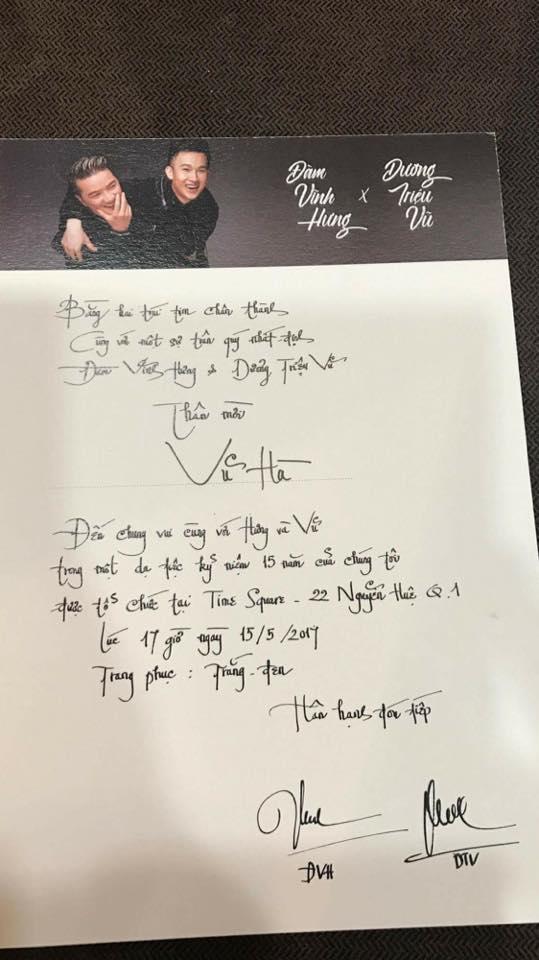 Đàm Vĩnh Hưng x Dương Triệu Vũ
Bằng hai trái tim chân thành
Cùng với một sự trân quý nhất định
Đàm Vĩnh Hưng & Dương Triệu Vũ
Thân mời
Vũ Hà
Đến chung vui cùng với Hưng và Vũ
trong một dạ tiệc kỷ niệm 15 năm của chúng tôi
được tổ chức tại Time Square - 22 Nguyễn Huệ Q.1
Lúc 17 giờ ngày 15/5/2017
Trang phục : Trắng - đen
Hân hạnh đón tiếp
ĐVH
DTV